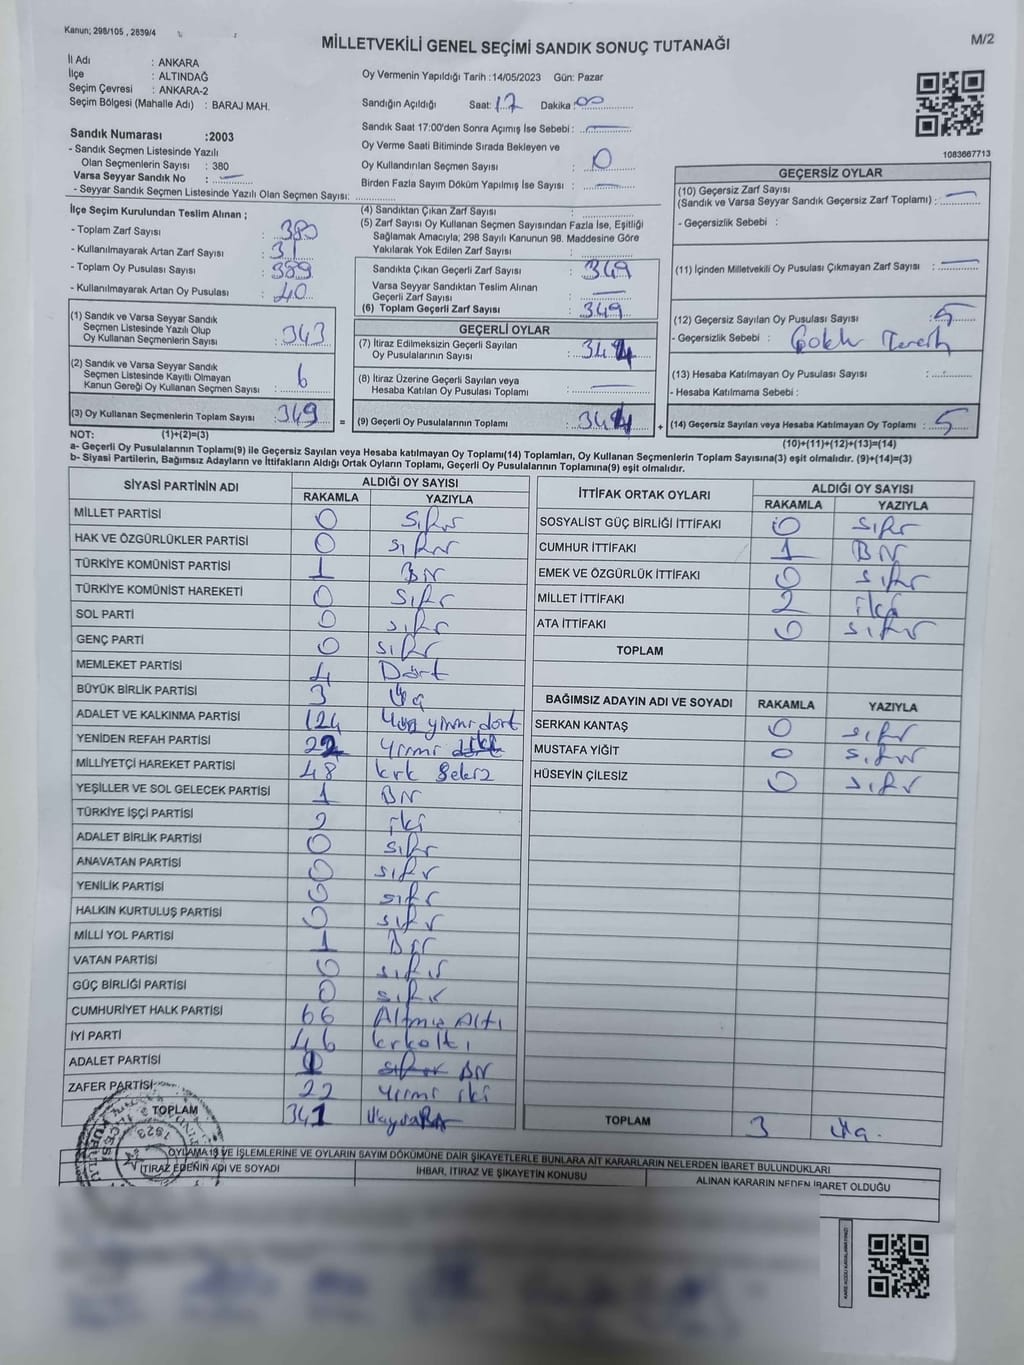 Kanun; 298/105 , 2839/4
MİLLETVEKİLİ GENEL SEÇİMİ SANDIK SONUÇ TUTANAĞI
M/2
İl Adı : ANKARA
İlçe : ALTINDAĞ
Seçim Çevresi : ANKARA-2
Seçim Bölgesi (Mahalle Adı) : BARAJ MAH.
Oy Vermenin Yapıldığı Tarih :14/05/2023 Gün: Pazar
Sandığın Açıldığı Saat: 17 Dakika: 00
Sandık Saat 17:00'den Sonra Açımış İse Sebebi : —
Oy Verme Saati Bitiminde Sırada Bekleyen ve
Oy Kullandırılan Seçmen Sayısı : 0
Birden Fazla Sayım Döküm Yapılmış İse Sayısı : —
1083667713
Sandık Numarası :2003
- Sandık Seçmen Listesinde Yazılı
Olan Seçmenlerin Sayısı : 380
Varsa Seyyar Sandık No : —
- Seyyar Sandık Seçmen Listesinde Yazılı Olan Seçmen Sayısı:
İlçe Seçim Kurulundan Teslim Alınan ;
- Toplam Zarf Sayısı : 380
- Kullanılmayarak Artan Zarf Sayısı : 31
- Toplam Oy Pusulası Sayısı : 389
- Kullanılmayarak Artan Oy Pusulası : 40
(1) Sandık ve Varsa Seyyar Sandık
Seçmen Listesinde Yazılı Olup
Oy Kullanan Seçmenlerin Sayısı : 343
(2) Sandık ve Varsa Seyyar Sandık
Seçmen Listesinde Kayıtlı Olmayan
Kanun Gereği Oy Kullanan Seçmen Sayısı : 6
(3) Oy Kullanan Seçmenlerin Toplam Sayısı : 349 =
(4) Sandıktan Çıkan Zarf Sayısı :
(5) Zarf Sayısı Oy Kullanan Seçmen Sayısından Fazla İse, Eşitliği
Sağlamak Amacıyla; 298 Sayılı Kanunun 98. Maddesine Göre
Yakılarak Yok Edilen Zarf Sayısı :
Sandıkta Çıkan Geçerli Zarf Sayısı : 349
Varsa Seyyar Sandıktan Teslim Alınan
Geçerli Zarf Sayısı : —
(6) Toplam Geçerli Zarf Sayısı : 349
GEÇERLİ OYLAR
(7) İtiraz Edilmeksizin Geçerli Sayılan
Oy Pusulalarının Sayısı : 344
(8) İtiraz Üzerine Geçerli Sayılan veya
Hesaba Katılan Oy Pusulası Toplamı : —
(9) Geçerli Oy Pusulalarının Toplamı : 344 +
GEÇERSİZ OYLAR
(10) Geçersiz Zarf Sayısı
(Sandık ve Varsa Seyyar Sandık Geçersiz Zarf Toplamı) : —
- Geçersizlik Sebebi :
(11) İçinden Milletvekili Oy Pusulası Çıkmayan Zarf Sayısı : —
(12) Geçersiz Sayılan Oy Pusulası Sayısı : 5
- Geçersizlik Sebebi :
(13) Hesaba Katılmayan Oy Pusulası Sayısı :
- Hesaba Katılmama Sebebi :
(14) Geçersiz Sayılan veya Hesaba Katılmayan Oy Toplamı : 5
NOT: (1)+(2)=(3)
(10)+(11)+(12)+(13)=(14)
a- Geçerli Oy Pusulalarının Toplamı(9) ile Geçersiz Sayılan veya Hesaba Katılmayan Oy Toplamı(14) Toplamları, Oy Kullanan Seçmenlerin Toplam Sayısına(3) eşit olmalıdır. (9)+(14)=(3)
b- Siyasi Partilerin, Bağımsız Adayların ve İttifakların Aldığı Ortak Oyların Toplamı, Geçerli Oy Pusulalarının Toplamına(9) eşit olmalıdır.
SİYASİ PARTİNİN ADI ALDIĞI OY SAYISI
RAKAMLA YAZIYLA
MİLLET PARTİSİ 0 Sıfır
HAK VE ÖZGÜRLÜKLER PARTİSİ 0 sıfır
TÜRKİYE KOMÜNİST PARTİSİ 1 Bir
TÜRKİYE KOMÜNİST HAREKETİ 0 Sıfır
SOL PARTİ 0 sıfır
GENÇ PARTİ 0 sıfır
MEMLEKET PARTİSİ 4 Dört
BÜYÜK BİRLİK PARTİSİ 3 Üç
ADALET VE KALKINMA PARTİSİ 124 Yüz yirmi dört
YENİDEN REFAH PARTİSİ 22 Yirmi iki
MİLLİYETÇİ HAREKET PARTİSİ 48 kırk Sekiz
YEŞİLLER VE SOL GELECEK PARTİSİ 1 Bir
TÜRKİYE İŞÇİ PARTİSİ 2 iki
ADALET BİRLİK PARTİSİ 0 sıfır
ANAVATAN PARTİSİ 0 sıfır
YENİLİK PARTİSİ 0 sıfır
HALKIN KURTULUŞ PARTİSİ 0 sıfır
MİLLİ YOL PARTİSİ 1 Bir
VATAN PARTİSİ 0 sıfır
GÜÇ BİRLİĞİ PARTİSİ 0 sıfır
CUMHURİYET HALK PARTİSİ 66 Altmış Altı
İYİ PARTİ 46 kırkaltı
ADALET PARTİSİ 1 sıfır Bir
ZAFER PARTİSİ 22 Yirmi iki
TOPLAM 341
İTTİFAK ORTAK OYLARI ALDIĞI OY SAYISI
RAKAMLA YAZIYLA
SOSYALİST GÜÇ BİRLİĞİ İTTİFAKI 0 sıfır
CUMHUR İTTİFAKI 1 Bir
EMEK VE ÖZGÜRLÜK İTTİFAKI 0 sıfır
MİLLET İTTİFAKI 2 iki
ATA İTTİFAKI 0 sıfır
TOPLAM
BAĞIMSIZ ADAYIN ADI VE SOYADI RAKAMLA YAZIYLA
SERKAN KANTAŞ 0 sıfır
MUSTAFA YİĞİT 0 sıfır
HÜSEYİN ÇİLESİZ 0 sıfır
TOPLAM 3 Üç.
OYLAMA İŞ VE İŞLEMLERİNE VE OYLARIN SAYIM DÖKÜMÜNE DAİR ŞİKAYETLERLE BUNLARA AİT KARARLARIN NELERDEN İBARET BULUNDUKLARI
İTİRAZ EDENİN ADI VE SOYADI
İHBAR, İTİRAZ VE ŞİKAYETİN KONUSU
ALINAN KARARIN NEDEN İBARET OLDUĞU